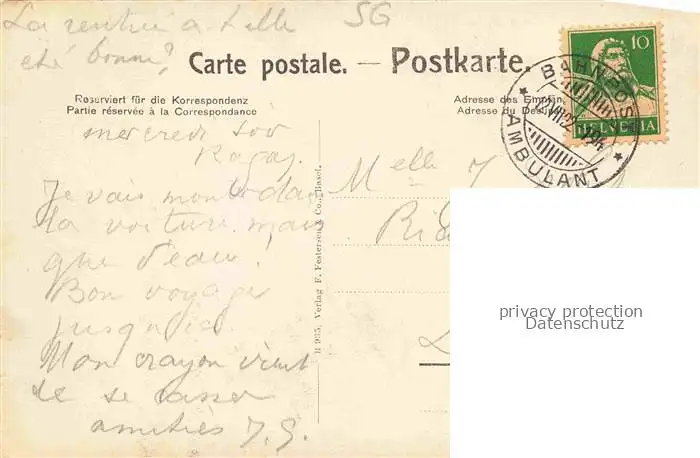 La rentrée a-t-elle
été bonne?
SG
Carte postale. — Postkarte.
10
HELVETIA
BAHNPOST
AMBULANT
Reserviert für die Korrespondenz
Partie réservée à la Correspondance
Adresse des Empfän
Adresse du Desti
mercredi soir
Ragaz.
Je vais monter dans
la voiture mais
que d'eau!
Bon voyage
jusqu'ici.
Mon crayon vient
de se casser
amitiés J.G.
Melle
B 935, Verlag F. Festersen & Co., Basel.
privacy protection
Datenschutz